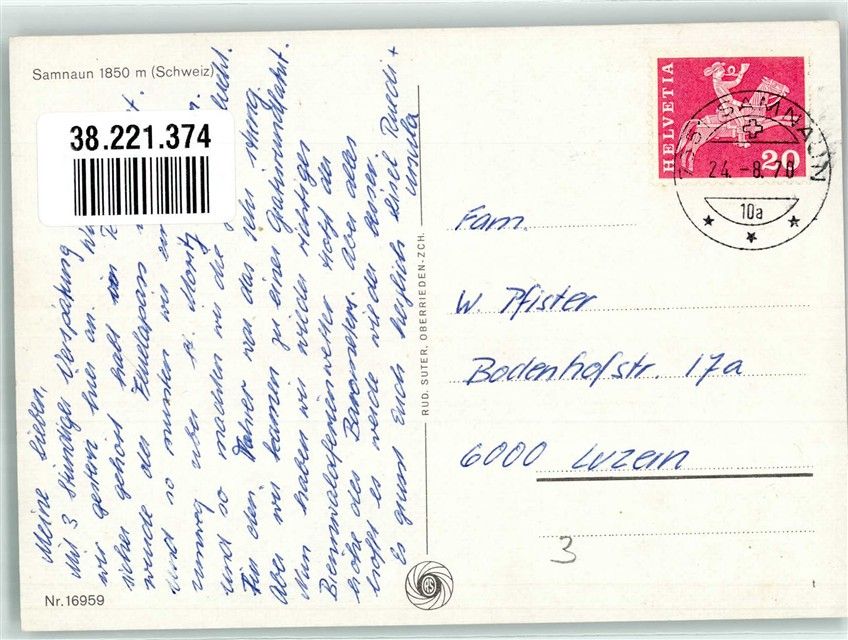 Samnaun 1850 m (Schweiz)
38.221.374
Meine Lieben,
Mit 3 stündiger Verspätung
wir gestern hier an.
sicher gehört habt
wurde der Flüelapass
und so mussten wir ein
umweg über St. Moritz
und so machten wir die
Für den Fahrer war das sehr streng.
Aber wir kamen zu einer Gratisrundfahrt.
Nun haben wir wieder richtiges
Bienwaldferienwetter trotz der
höhe des Barometers. Aber alles
hofft es werde wieder besser.
Es grüsst Euch herzlich Ruedi +
Ursula
RUD. SUTER, OBERRIEDEN-ZCH.
Nr. 16959
HELVETIA
20
SAMNAUN
24.-8.70
10a
Fam.
W. Pfister
Bodenhofstr. 17a
6000 Luzern
3